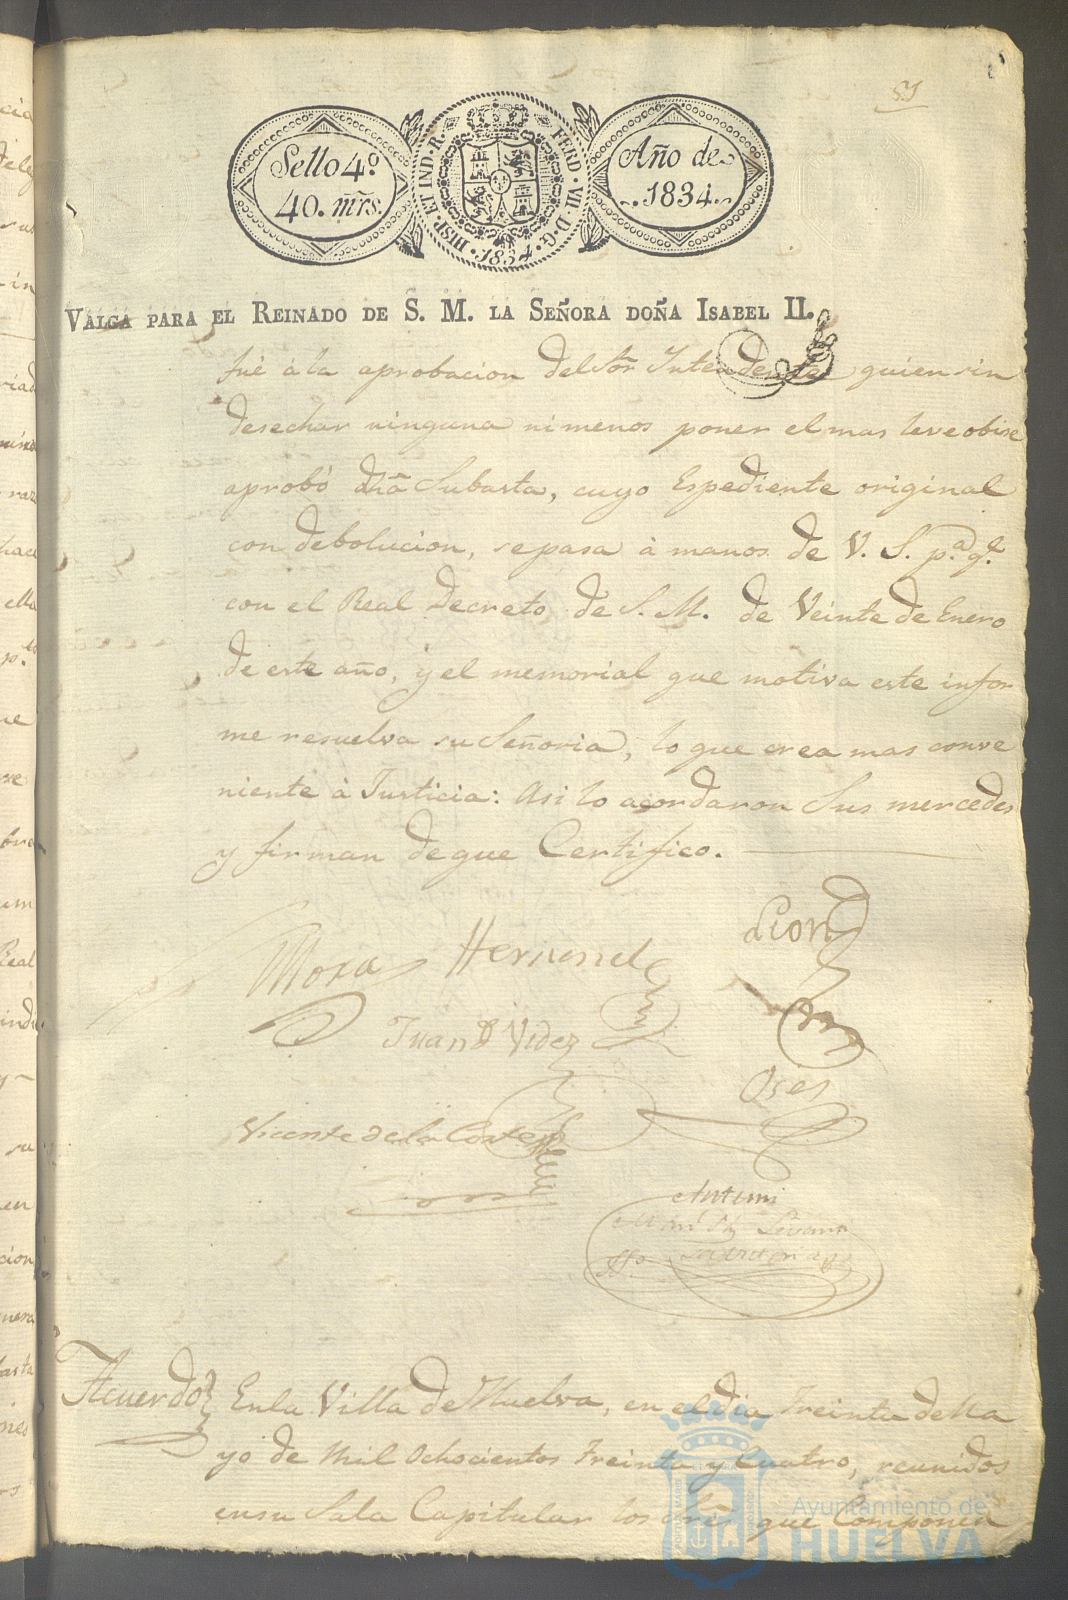 51
Sello 4º
40. mrs.
HISP. ET IND. R.
FERD. VII. D. G.
1834
Año de
1834.
VALGA PARA EL REINADO DE S. M. LA SEÑORA DOÑA ISABEL II.
fué á la aprobacion del Sor Intendente quien sin
desechar ninguna ni menos poner el mas leve obise
aprobó dha Subasta, cuyo Espediente original
con debolucion, se pasa á manos de V. S. pª qe
con el Real Decreto de S. M. de Veinte de Enero
de este año, y el memorial que motiva este infor
me resuelva su Señoria, lo que crea mas conve
niente á Justicia: Asi lo acordaron Sus mercedes
y firman de que Certifico.
Mora
Leon
Juan
Oses
Vicente de la Corte
Acuerdo
En la Villa de Huelva, en el dia Treinta de Ma
yo de Mil Ochocientos Treinta y Cuatro, reunidos
en su Sala Capitular los Sres que Componen
Ayuntamiento de
HUELVA